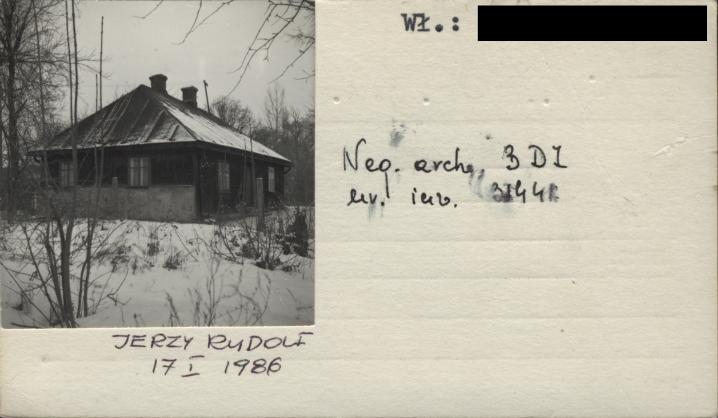 Wł.:
Neg. arch. 3 DI
nr. inw.
JERZY RUDOLF
17 I 1986